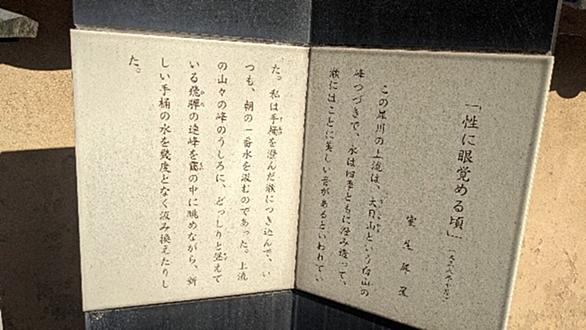 「性に眼覚める頃」
室生犀星
この犀川の上流は、大日山という白山の
峰つづきで、水は四季ともに澄み透って、
瀬にはことに美しい音があるといわれてい
た。私は手桶を澄んだ瀬につき込んで、い
つも、朝の一番水を汲むのであった。上流
の山々の峰のうしろに、どっしりと聳えて
いる飛騨の連峰を靄の中に眺めながら、新
しい手桶の水を幾度となく汲み換えたりし
た。